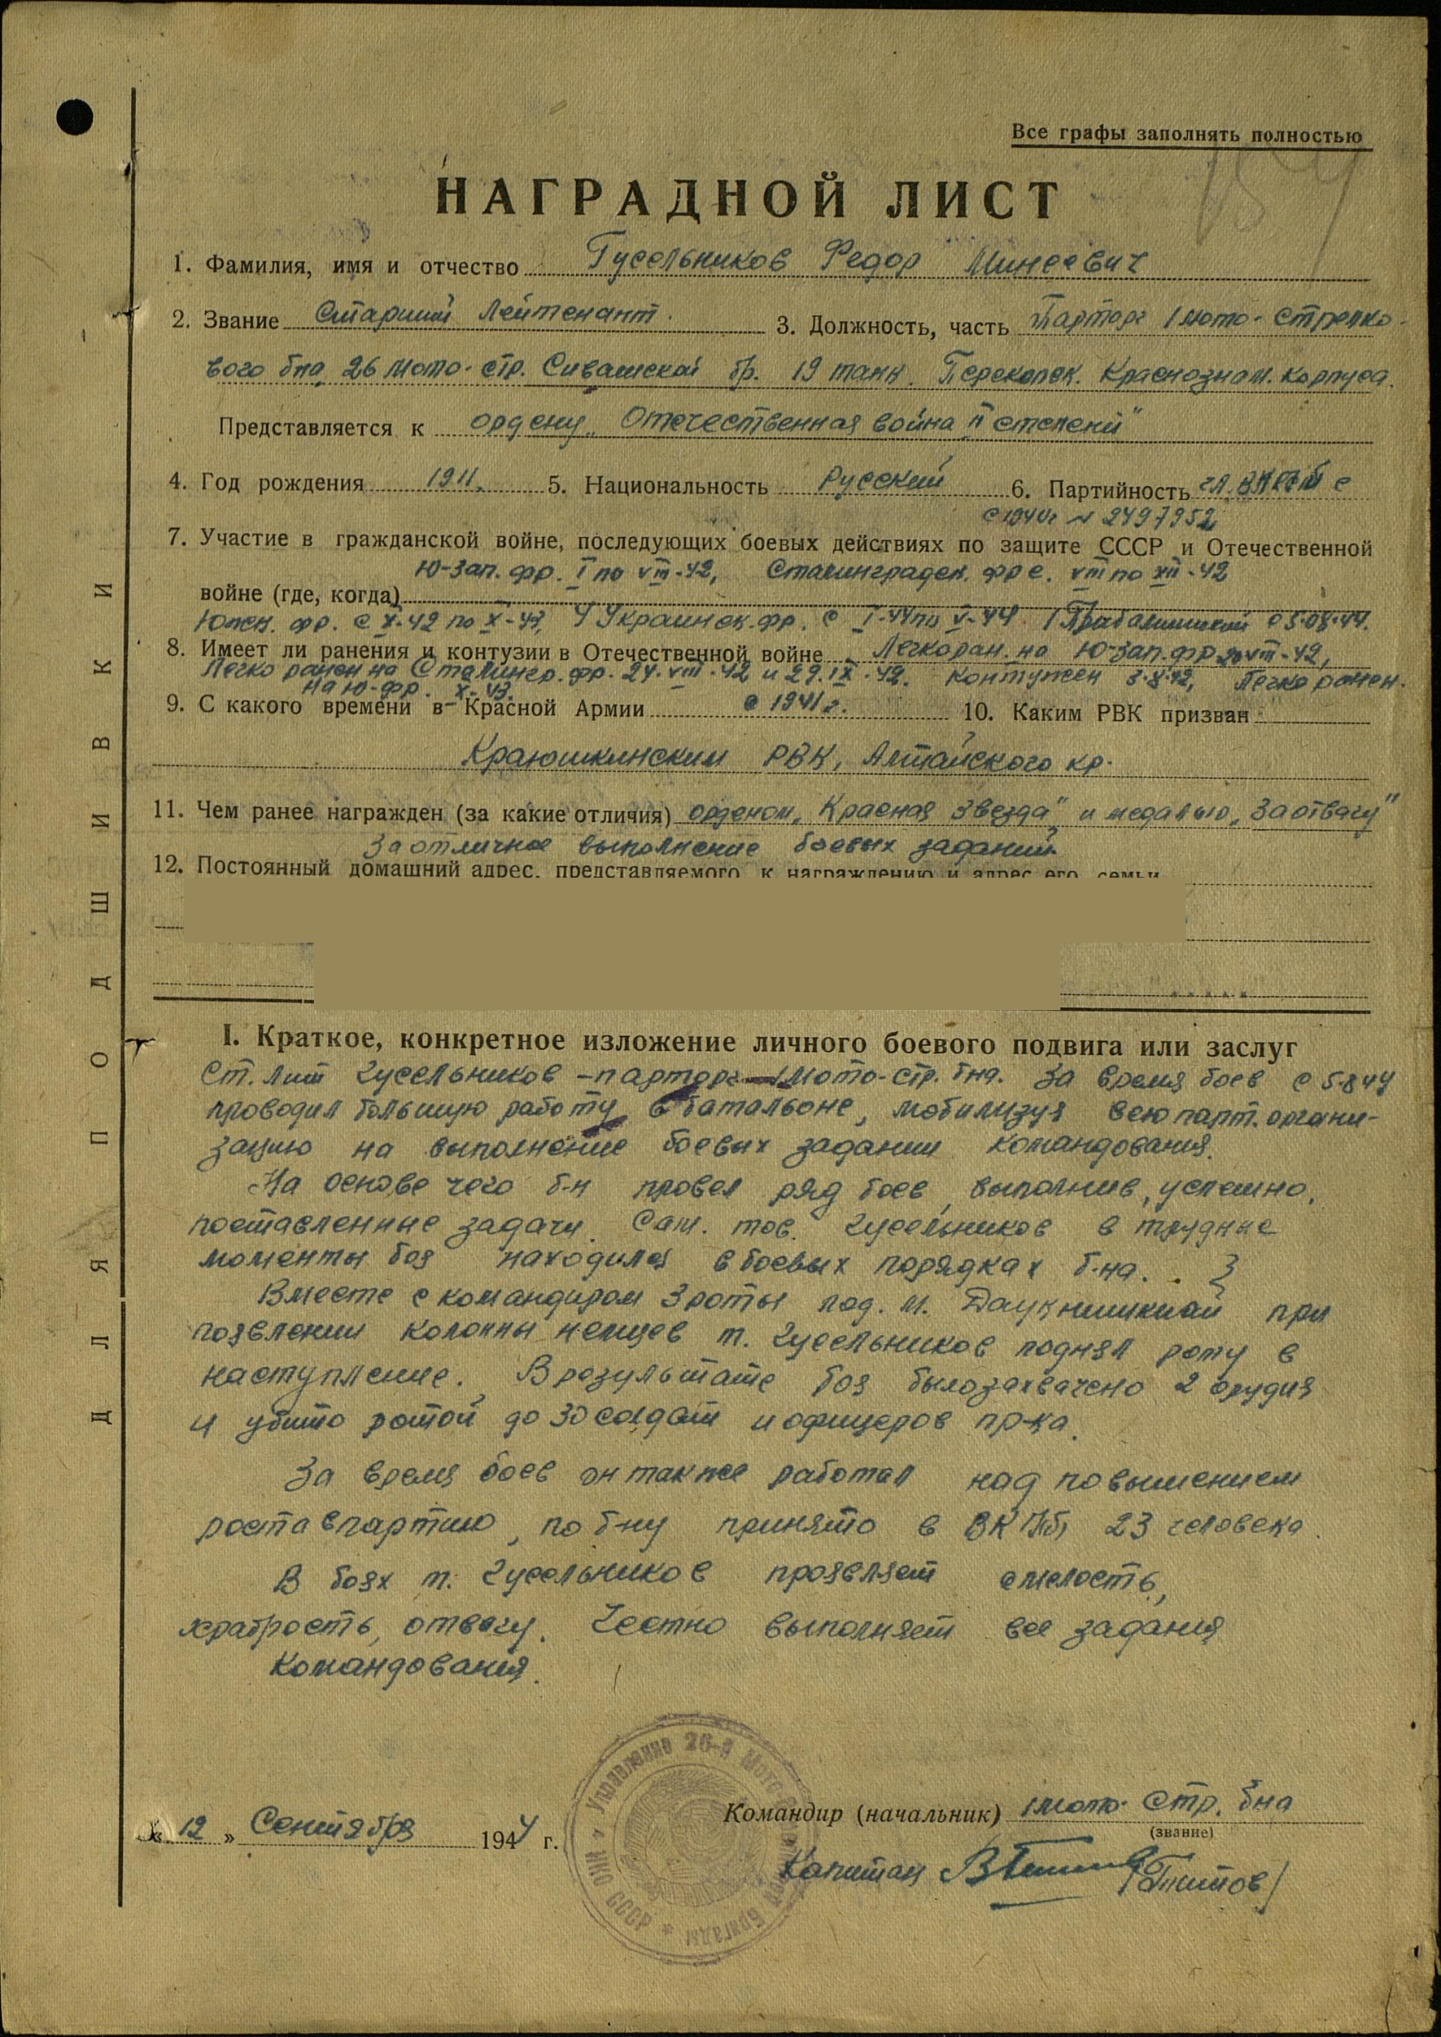 Все графы заполнять полностью
НАГРАДНОЙ ЛИСТ
1. Фамилия, имя и отчество Гусельников Федор Минеевич
2. Звание Старший Лейтенант. 3. Должность, часть Парторг 1 мото-стрелко-
вого бна, 26 мото-стр. Сивашской бр. 19 танк. Перекопск. Краснознам. корпуса.
Представляется к ордену „Отечественная война II степени"
4. Год рождения 1911. 5. Национальность Русский 6. Партийность чл. ВКПб с
с 1940г N 2497952
7. Участие в гражданской войне, последующих боевых действиях по защите СССР и Отечественной
Ю-Зап. фр. I по VIII-42, Сталинградск. фр с. VIII по XII-42
войне (где, когда)
Южн. фр. с X-42 по X-43, 4 Украинск. фр. с I-44 по V-44 1 Прибалтийский с 5.08.44.
8. Имеет ли ранения и контузии в Отечественной войне Легко ран. на Ю-зап. фр 20 VIII-42,
Легко ранен на Сталингр. фр. 24.VIII-42 и 29.IX-42. контужен 3.X.42, Легко ранен.
на Ю-фр. X-43.
9. С какого времени в Красной Армии с 1941 г. 10. Каким РВК призван
Краюшкинским РВК, Алтайского кр.
11. Чем ранее награжден (за какие отличия) орденом „Красная Звезда" и медалью „За отвагу"
За отличное выполнение боевых заданий.
12. Постоянный домашний адрес, представляемого к награждению и адрес его семьи
I. Краткое, конкретное изложение личного боевого подвига или заслуг
Ст. Лит Гусельников - парторг 1 мото-стр. бна. За время боев с 5.8 44
проводил большую работу в батальоне, мобилизуя всю парт. органи-
зацию на выполнение боевых задании командования.
На основе чего б-н провел ряд боев, выполнив, успешно,
поставленные задачи. Сам. тов. Гусельников в трудные
моменты боя находился в боевых порядках б-на.
Вместе с командиром 3 роты при
появлении колонны немцев т. Гусельников поднял роту в
наступление. В результате боя было захвачено 2 орудия
и убито ротой до 30 солдат и офицеров пр-ка.
За время боев он также работал над повышением
роста в партию, по б-ну принято в ВКП(б) 23 человека.
В боях т. Гусельников проявляет смелость,
храбрость, отвагу. Честно выполняет все задания
Командования.
« 12 » Сентября 1944 г.
Командир (начальник) 1 мото-стр. бна
(звание)
Капитан /Титов/
Управление 26-й Мото Бригады НКО СССР
ДЛЯ ПОДШИВКИ